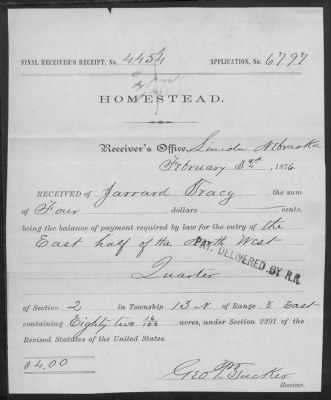 FINAL RECEIVER'S RECEIPT, No. 4454 APPLICATION, No. 6797
HOMESTEAD.
Receiver's Office, Lincoln Nebraska
February 3rd, 1876
RECEIVED of Jarrard Tracy the sum
of Four dollars cents,
being the balance of payment required by law for the entry of the
East half of the North West
PAT. DELIVERED BY R.R.
Quarter
of Section 2 in Township 13 N of Range 8 East
containing Eighty two 16/100 acres, under Section 2291 of the
Revised Statutes of the United States.
$4.00
Geo P Tucker
Receiver.